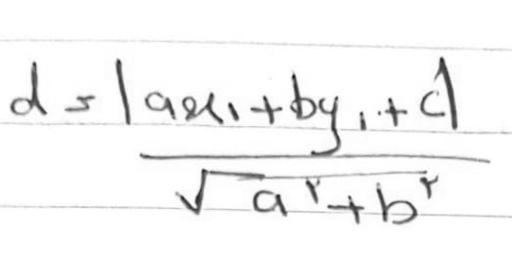 d = |ax₁ + by₁ + c|
√a² + b²